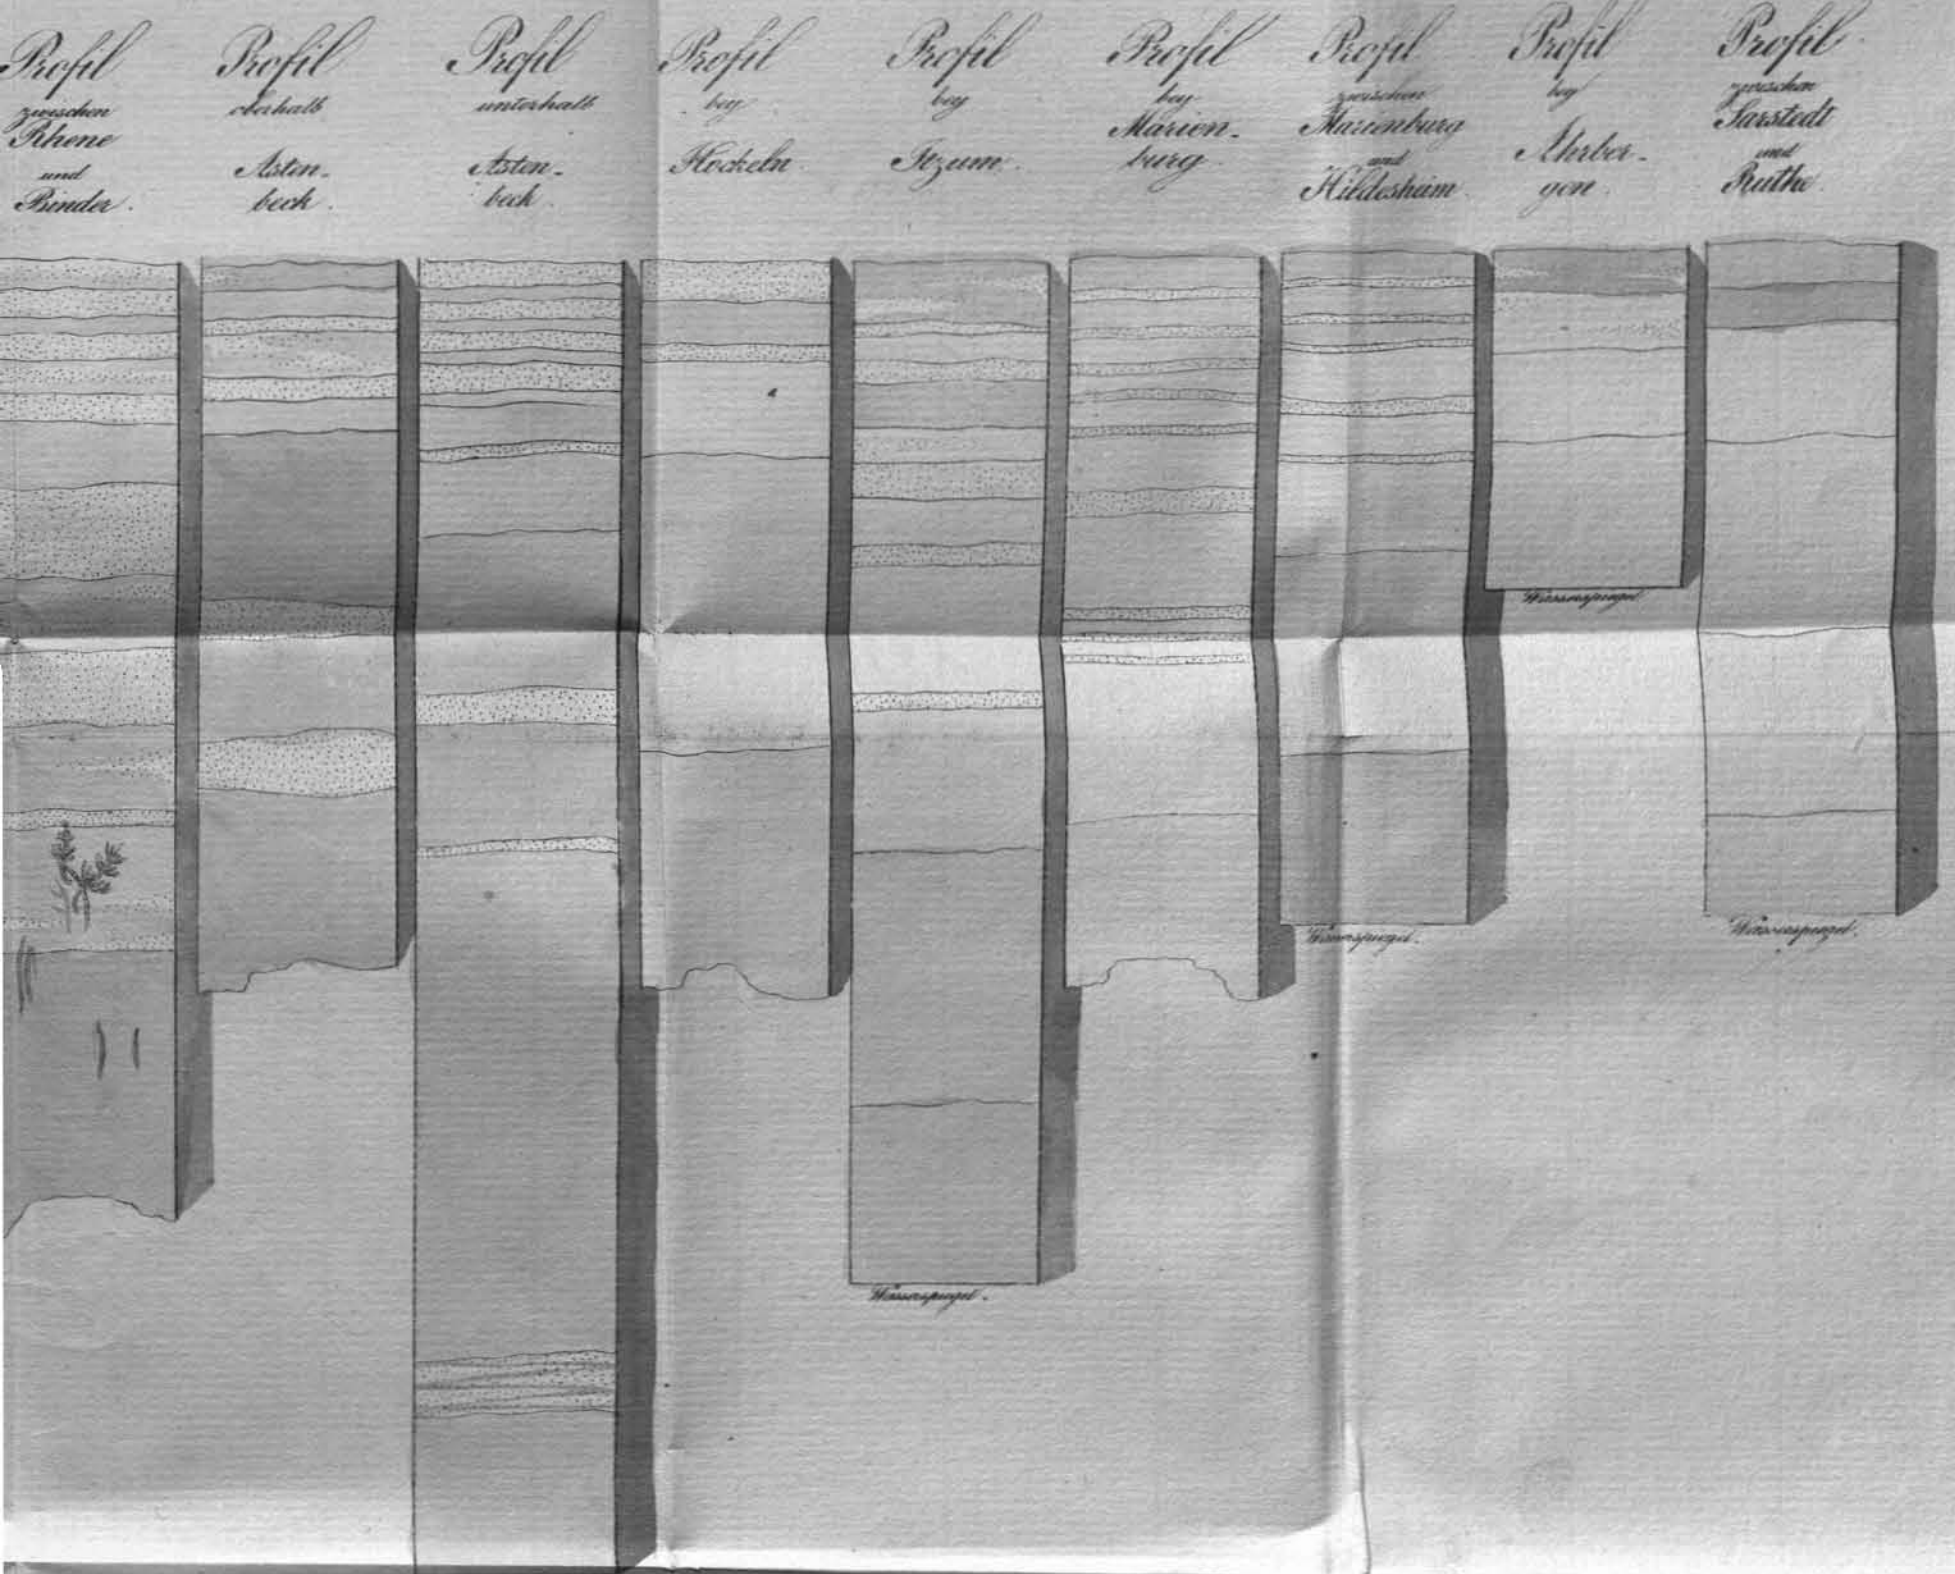 Profil
zwischen
Rhene
und
Binder.
Profil
oberhalb
Asten-
beck.
Profil
unterhalb
Asten-
beck.
Profil
bey
Hockeln.
Profil
bey
Itzum.
Profil
bey
Marien-
burg.
Profil
zwischen
Marienburg
und
Hildesheim.
Profil
bey
Ahrber-
gen.
Profil
zwischen
Sarstedt
und
Ruthe.
Wasserspiegel
Wasserspiegel.
Wasserspiegel.
Wasserspiegel.